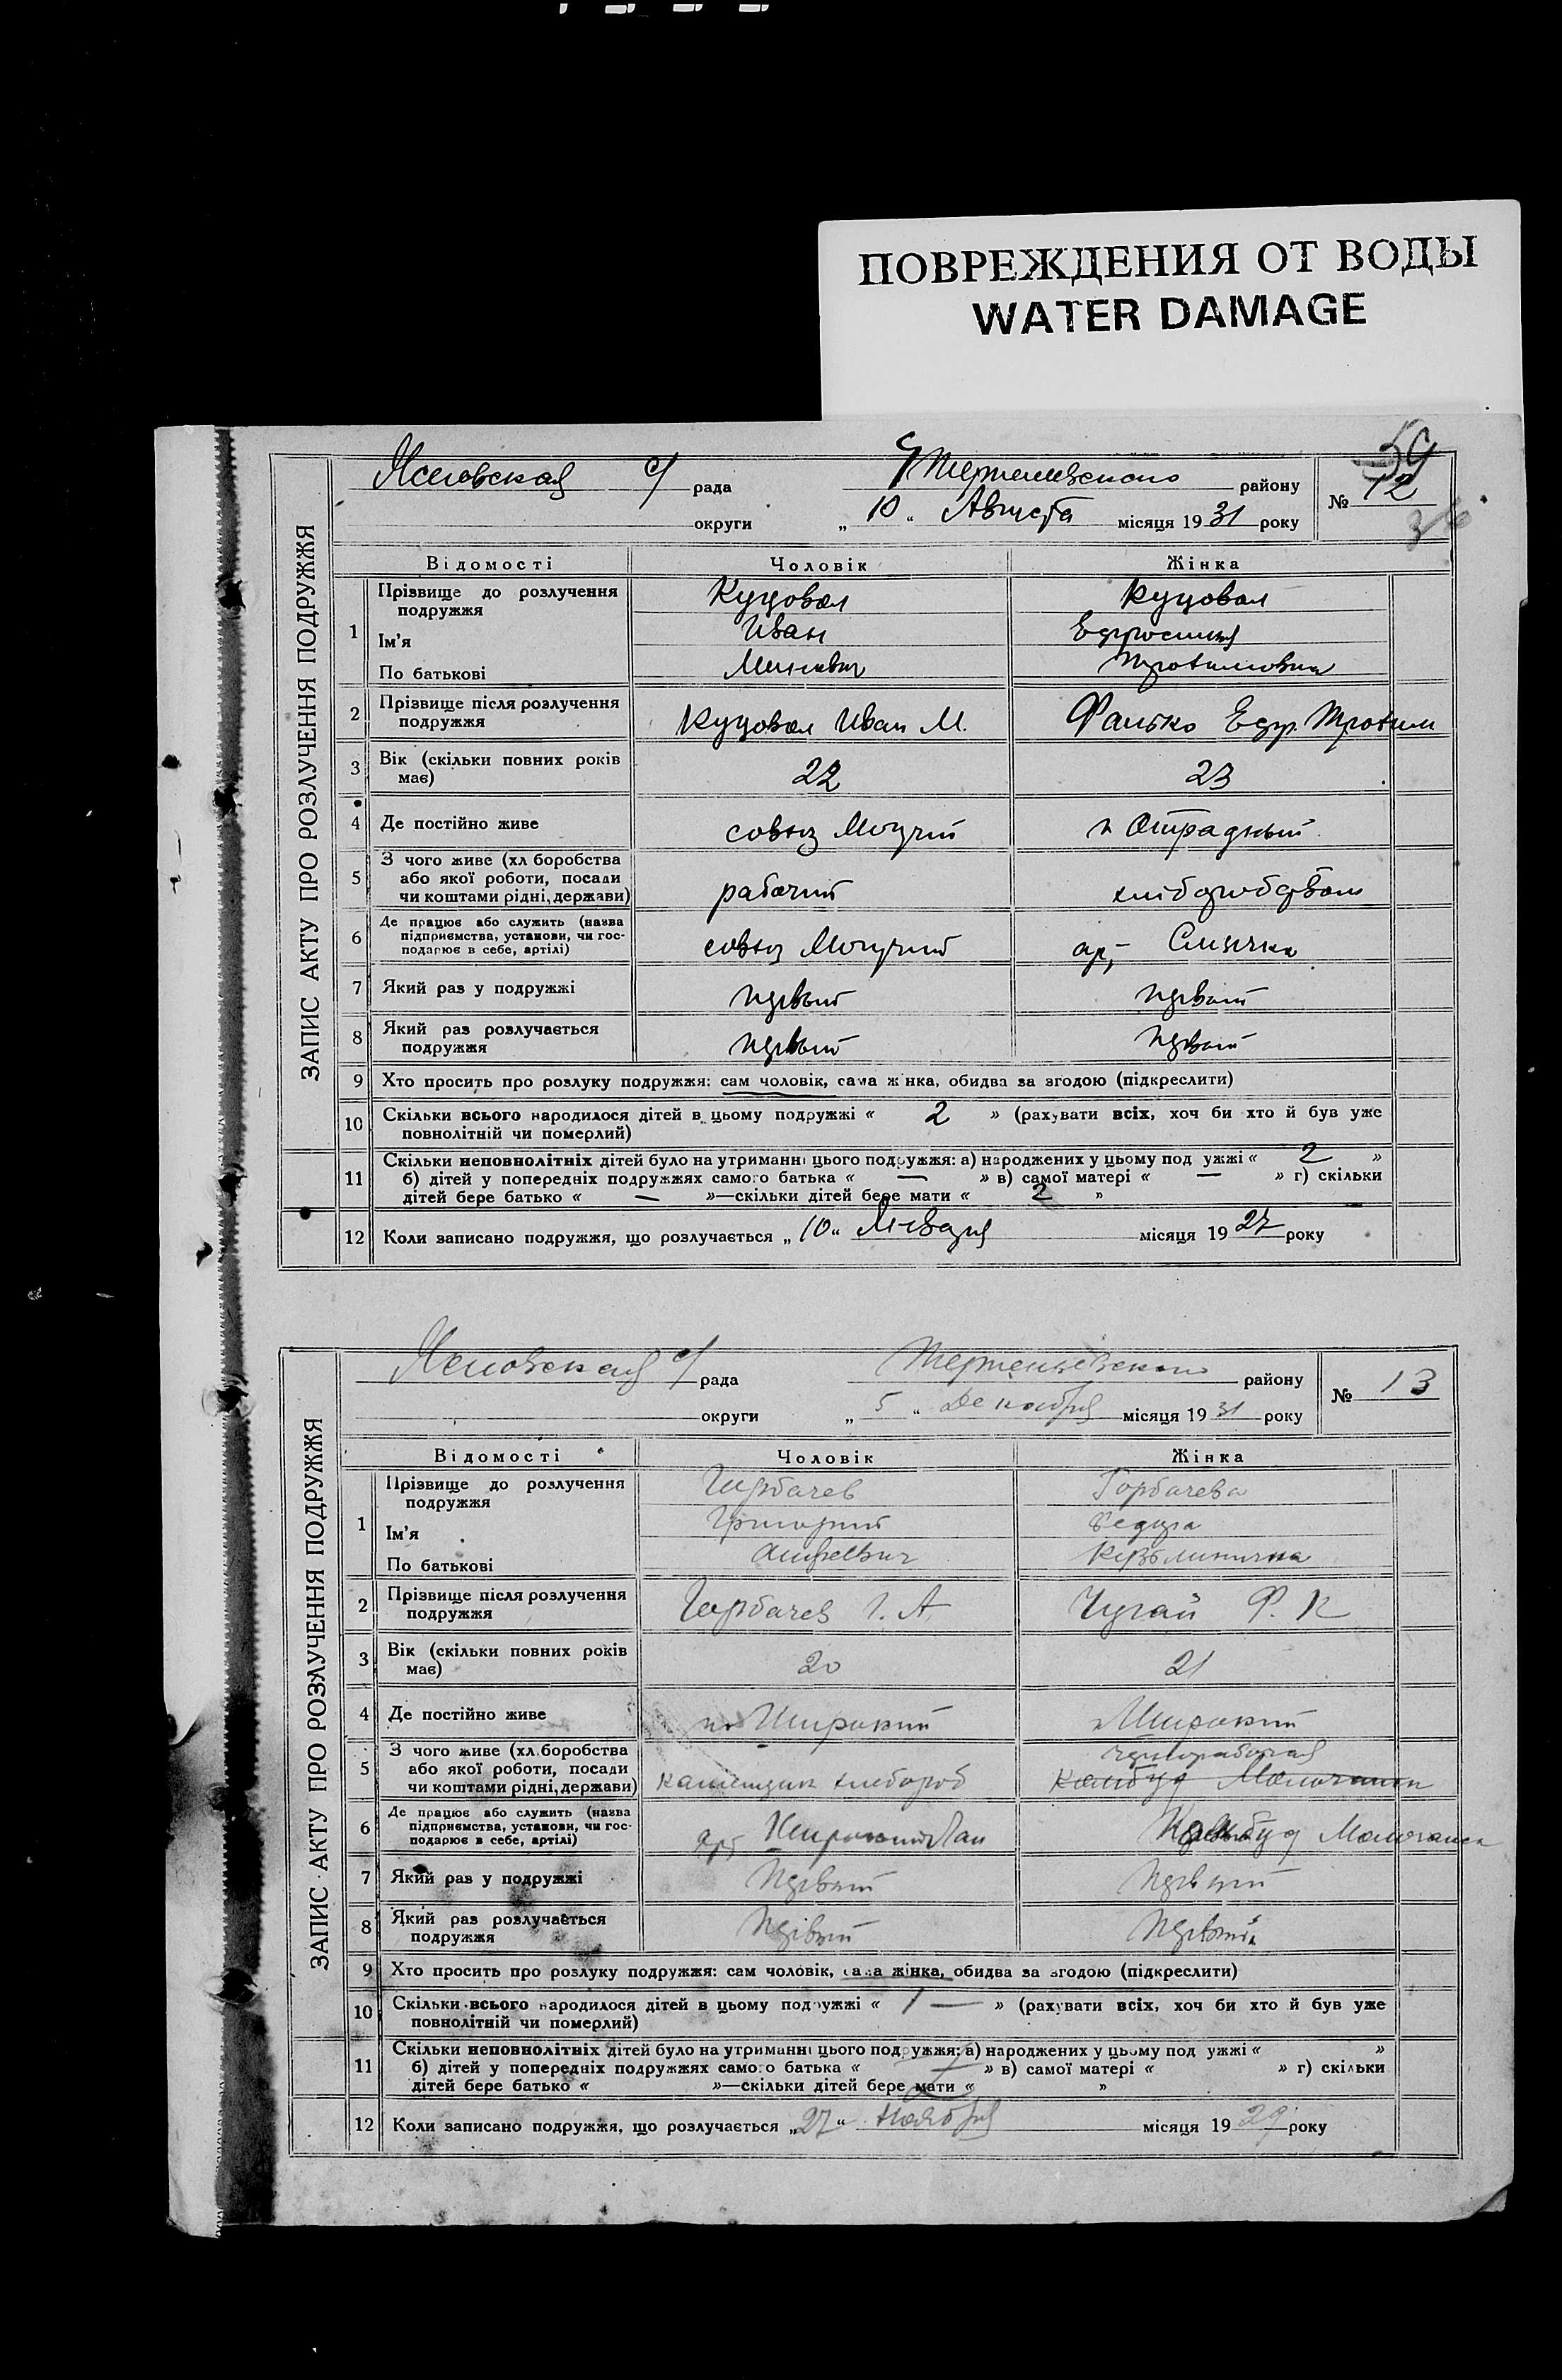 ПОВРЕЖДЕНИЯ ОТ ВОДЫ
WATER DAMAGE
59
с/ рада району № 12
округи „ 10 “ Августа місяця 1931 року
ЗАПИС АКТУ ПРО РОЗЛУЧЕННЯ ПОДРУЖЖЯ
Відомості Чоловік Жінка
1 Прізвище до розлучення подружжя Куцовол Куцовол
Ім'я Иван Ефросиния
По батькові Трофимовна
2 Прізвище після розлучення подружжя Куцовол Иван М. Фанько Ефр. Трофим
3 Вік (скільки повних років має) 22 23
4 Де постійно живе совхоз Могучий п Отрадный
5 З чого живе (хл боробства або якої роботи, посади чи коштами рідні, держави) рабочий
6 Де працює або служить (назва підприємства, установи, чи господарює в себе, артілі) совхоз Могучий арт Смычка
7 Який раз у подружжі первый первый
8 Який раз розлучається подружжя первый первый
9 Хто просить про розлуку подружжя: сам чоловік, сама жінка, обидва за згодою (підкреслити)
10 Скільки всього народилося дітей в цьому подружжі « 2 » (рахувати всіх, хоч би хто й був уже
повнолітній чи померлий)
11 Скільки неповнолітніх дітей було на утриманні цього подружжя: а) народжених у цьому под ужжі « 2 »
б) дітей у попередніх подружжях самого батька « — » в) самої матері « — » г) скільки
дітей бере батько « — »—скільки дітей бере мати « 2 »
12 Коли записано подружжя, що розлучається „ 10 “ Января місяця 1927 року
с/ рада району № 13
округи „ 5 “ Декабря місяця 1931 року
ЗАПИС АКТУ ПРО РОЗЛУЧЕННЯ ПОДРУЖЖЯ
Відомості Чоловік Жінка
1 Прізвище до розлучення подружжя Горбачев Горбачева
Ім'я Григорий
По батькові Андреевич
2 Прізвище після розлучення подружжя Горбачев Г. А. Чугай Ф. К
3 Вік (скільки повних років має) 20 21
4 Де постійно живе по Широкий п Широкий
5 З чого живе (хл.боробства або якої роботи, посади чи коштами рідні, держави) хлебороб чернорабочая
6 Де працює або служить (назва підприємства, установи, чи господарює в себе, артілі) арт Широкий Лан Молочанск
7 Який раз у подружжі Первый Первый
8 Який раз розлучається подружжя Первый Первый
9 Хто просить про розлуку подружжя: сам чоловік, сама жінка, обидва за згодою (підкреслити)
10 Скільки всього народилося дітей в цьому подружжі « 1 — » (рахувати всіх, хоч би хто й був уже
повнолітній чи померлий)
11 Скільки неповнолітніх дітей було на утриманні цього подружжя: а) народжених у цьому под ужжі « »
б) дітей у попередніх подружжях самого батька « — » в) самої матері « » г) скільки
дітей бере батько « »—скільки дітей бере мати « »
12 Коли записано подружжя, що розлучається „ 27 “ Ноября місяця 1929 року